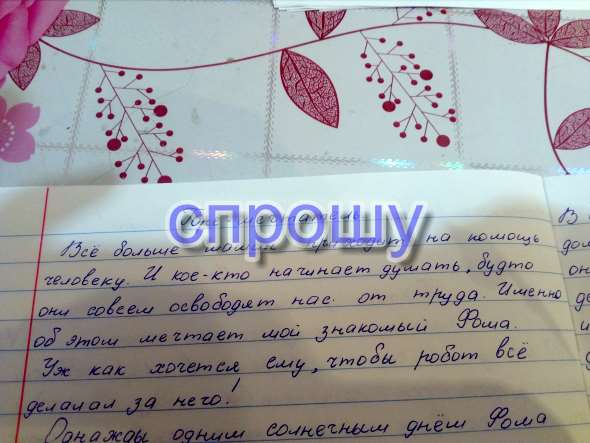 мечтатель
спрошу
Всё больше приходят на помощь
человеку. И кое-кто начинает думать, будто
они совсем освободят нас от труда. Именно
об этом мечтает мой знакомый Фома.
Уж как хочется ему, чтобы робот всё
делалал за него!
Однажды одним солнечным днём Фома